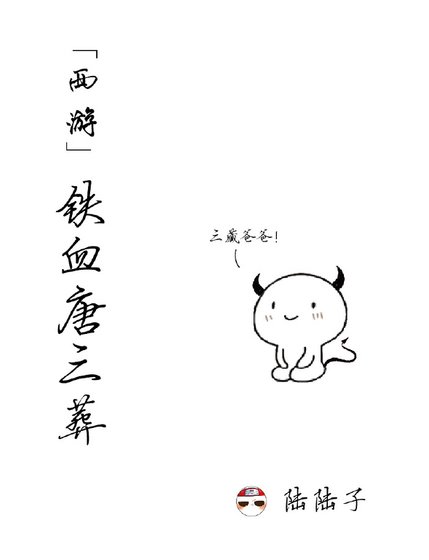 「西游」铁血唐三葬
三藏爸爸！
陆陆子